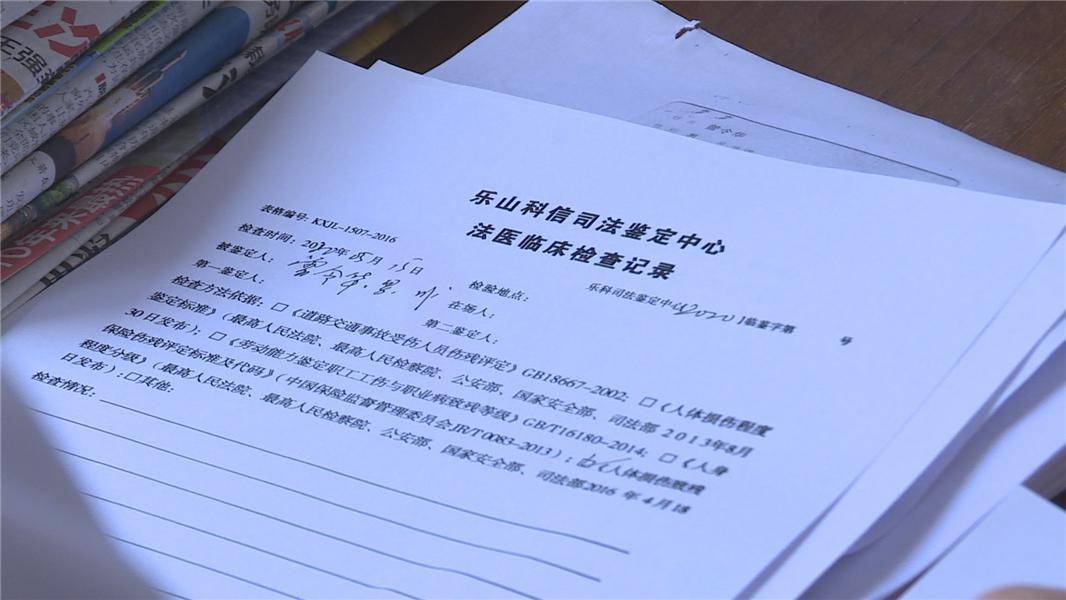 乐山科信司法鉴定中心
法医临床检查记录
表格编号: KXJL-1507-2016
乐科司法鉴定中心[2020]临鉴字第 号
检查时间: 2020年05月15日
检验地点:
被鉴定人: 曾令华 男
在场人:
第一鉴定人:
第二鉴定人:
检查方法依据: □《道路交通事故受伤人员伤残评定》GB18667-2002; □《人体损伤程度
鉴定标准》(最高人民法院、最高人民检察院、公安部、国家安全部、司法部 2013年8月
30日发布); □《劳动能力鉴定职工工伤与职业病致残等级》GB/T16180-2014; □《人身
保险伤残评定标准及代码》(中国保险监督管理委员会JR/T0083-2013); ☑《人体损伤致残
程度分级》(最高人民法院、最高人民检察院、公安部、国家安全部、司法部2016 年4月18
日发布); □其他:
检查情况:
10年来最热